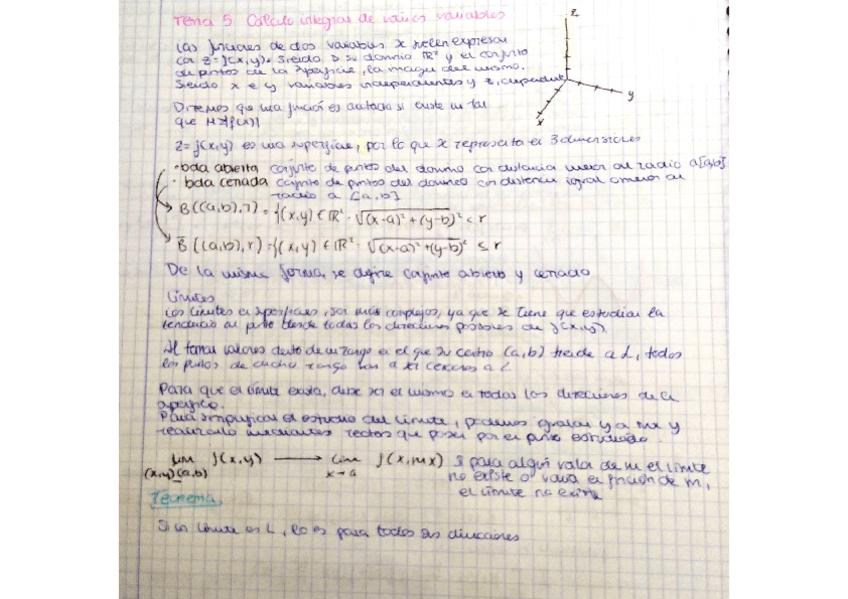 Tema 5 Calculo integral de varias variables
z
Las funciones de dos variables se suelen expresar
con z=f(x,y). Siendo D su dominio ℝ² y el conjunto
de puntos de la superficie, la imagen del mismo.
Siendo x e y variables independientes y z, dependiente
y
x
Diremos que una función es acotada si existe un tal
que M≥|f(x)|
z=f(x,y) es una superficie, por lo que se representa en 3 dimensiones
· bola abierta conjunto de puntos del dominio con distancia menor al radio a [a,b]
· bola cerrada conjunto de puntos del dominio con distancia igual o menor al
radio a [a,b]
B((a,b),r) = {(x,y) ∈ ℝ² · √(x-a)² + (y-b)² < r
B̄((a,b),r) = {(x,y) ∈ ℝ² · √(x-a)² + (y-b)² ≤ r
De la misma forma, se define conjunto abierto y cerrado
Límites
Los límites en superficies, son más complejos, ya que se tiene que estudiar la
tendencia al punto desde todas las direcciones posibles de f(x,y)
Al tomar valores dentro de un rango en el que su centro (a,b) tiende a L, todos
los puntos de dicho rango van a ser cercanos a L
Para que el límite exista, debe ser el mismo en todas las direcciones de la
superficie.
Para simplificar el estudio del límite, podemos igualar y a mx y
realizarlo mediantes rectas que pasen por el punto estudiado.
lim f(x,y) → lim f(x,mx) si para algún valor de m el límite
(x,y)→(a,b) x→a no existe o varia en función de m,
el límite no existe
Teorema
Si un límite es L, lo es para todas sus direcciones